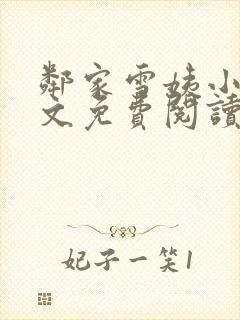 鄰家雪姨小
文免費閱讀
妃子一笑1